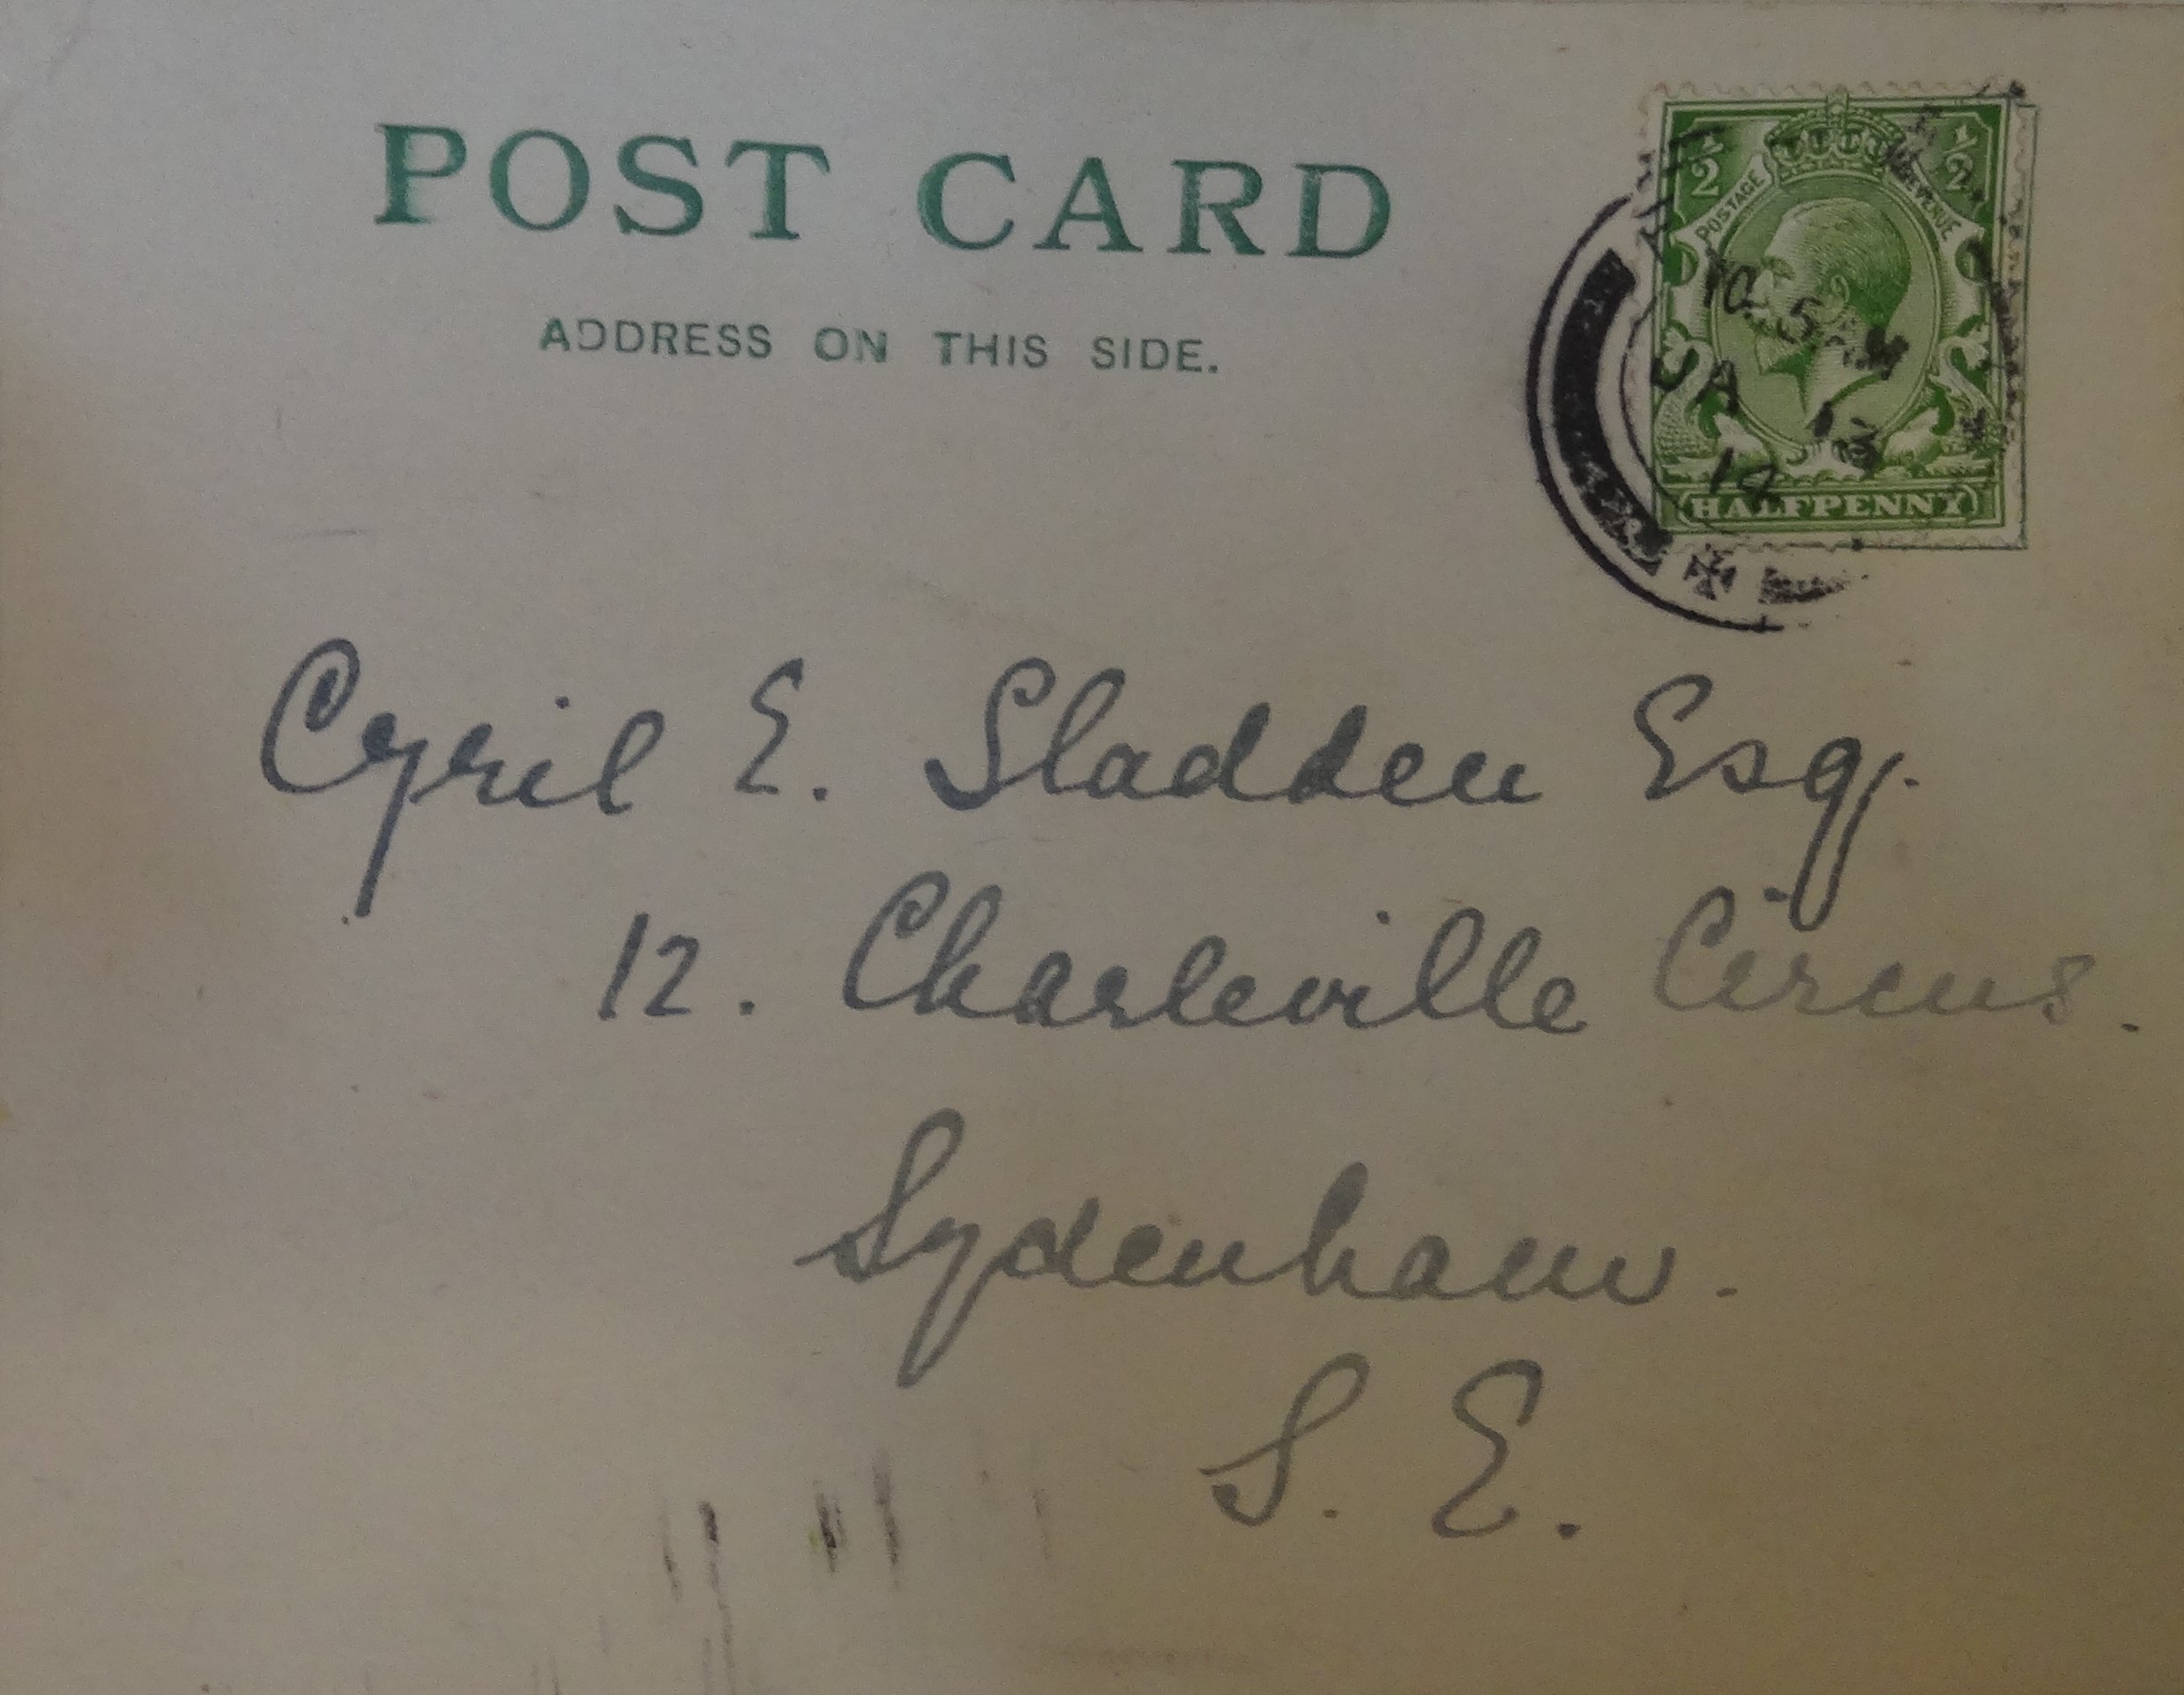 POST CARD
ADDRESS ON THIS SIDE.
½ ½
POSTAGE REVENUE
10. 5 AM
JA
14
HALFPENNY
Cyril E. Sladden Esq.
12. Charleville Circus.
Sydenham.
S. E.